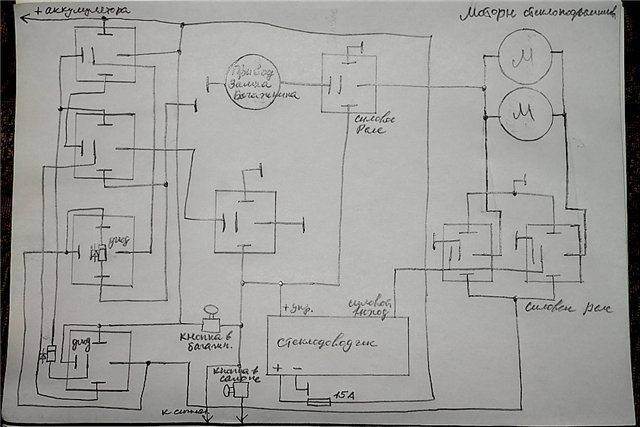 + аккумулятора
Моторы стеклоподъемников
Привод
Замка
багажника
силовое
Реле
М
М
диод
диод
кнопка в
багажн.
кнопка в
салоне
к сигнал
+ упр.
силовой
выход
стеклодоводчик
+ -
15А
силовые реле